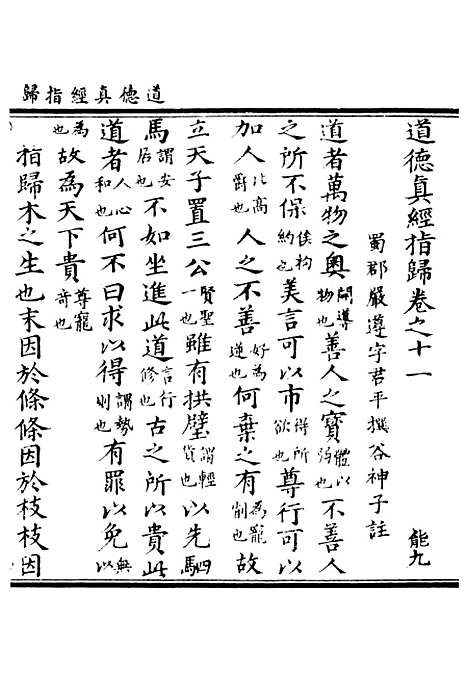 道德真經指歸
道德真經指歸卷之十一　能九
蜀郡嚴遵字君平撰谷神子註
道者萬物之奧開導物也善人之寶體以弱也不善人
之所不保候构約也美言可以市得所欲也尊行可以
加人比高爵也人之不善好為道也何棄之有為寵削也故
立天子置三公賢聖一也雖有拱璧謂輕貨也以先駟
馬謂安居也不如坐進此道言行修也古之所以貴此
道者人心和也何不曰求以得謂勢則也有罪以免無以
為也故為天下貴尊寵奇也
指歸木之生也末因於條條因於枝枝因